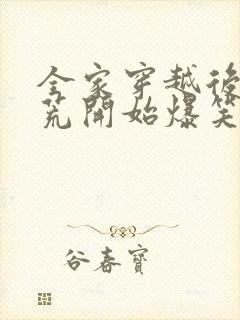 全家穿越後
荒開始爆笑
谷春寶